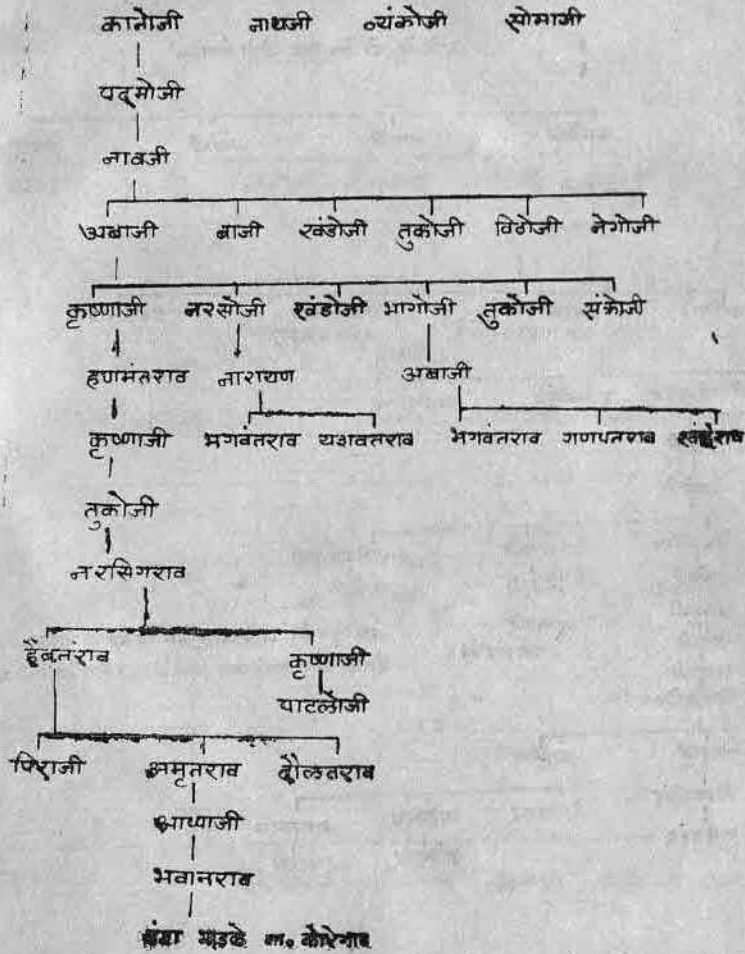 कानोजी नाथजी व्यंकोजी सोमाजी
पद्मोजी
नावजी
अबाजी बाजी खंडोजी तुकोजी विठोजी नेगोजी
कृष्णाजी नरसोजी खंडोजी भागोजी तुकोजी संक्रोजी
हणमंतराव नारायण अबाजी
कृष्णाजी भगवंतराव यशवतराव भगवंतराव गणपतराव खंडेराव
तुकोजी
नरसिगराव
हैबतंराव कृष्णाजी
पाटलोजी
पिराजी अमृतराव दौलतराव
आप्पाजी
भवानराव